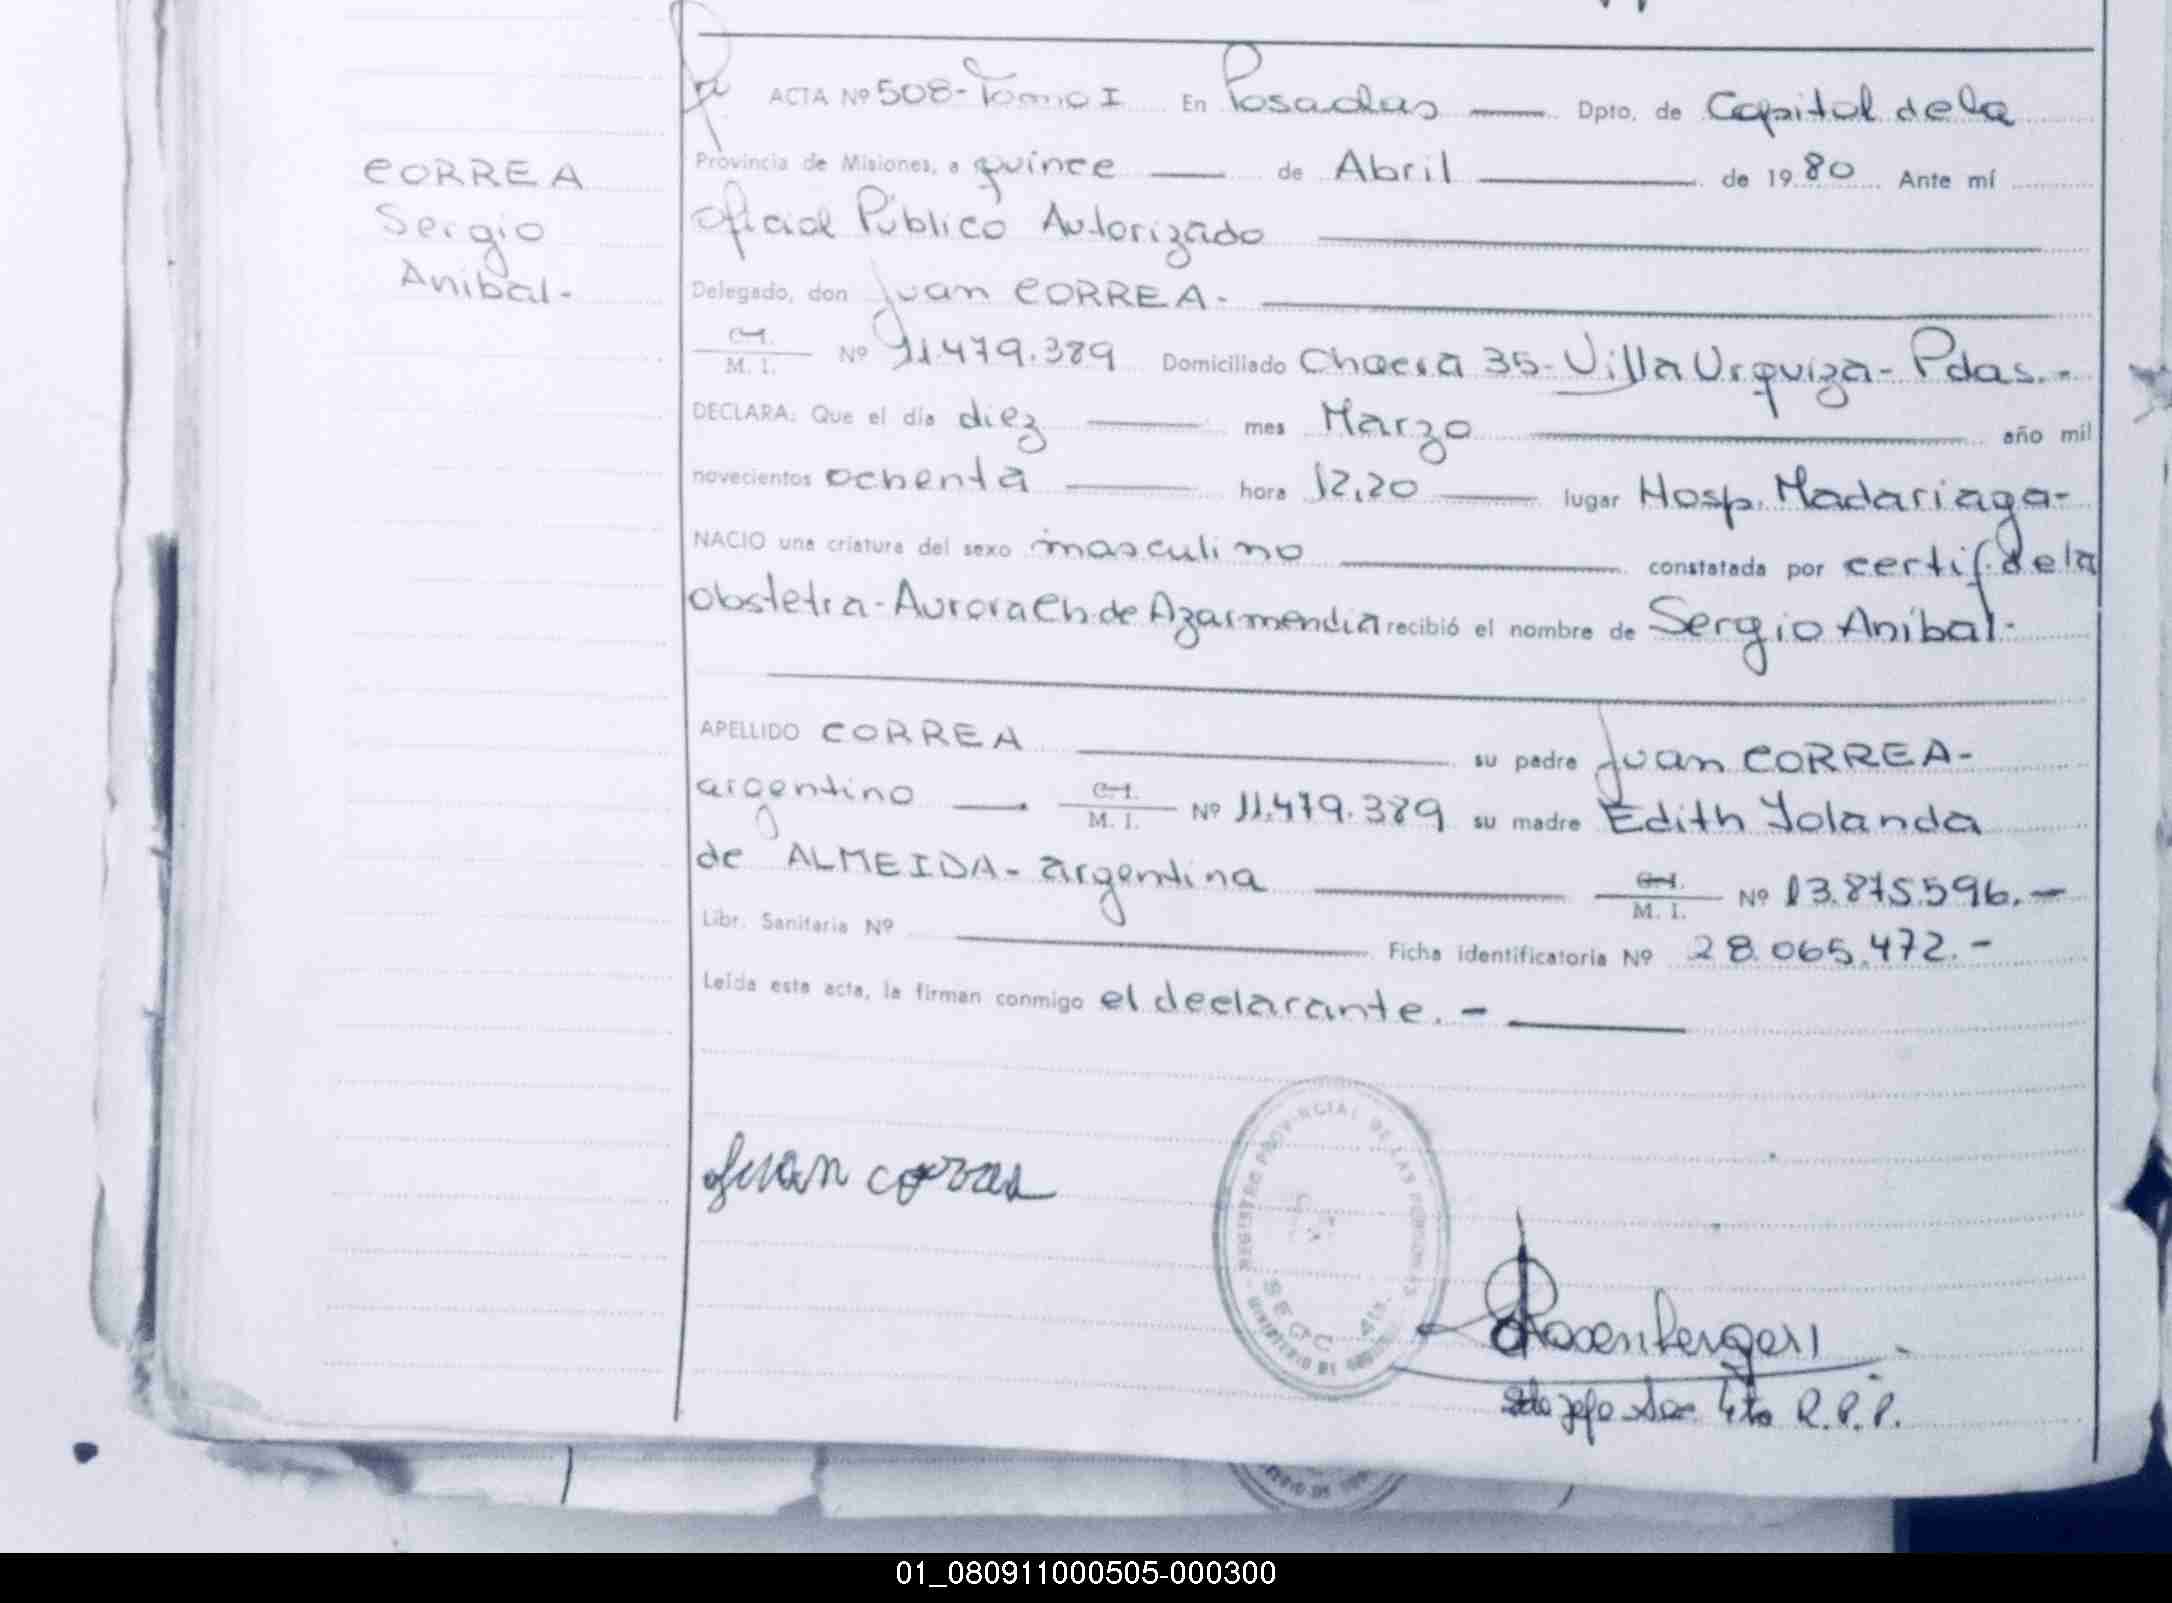 CORREA
Sergio
Anibal-
ACTA Nº 508-Tomo I En Posadas Dpto. de Capital de la
Provincia de Misiones, a quince de Abril de 1980 Ante mí
Oficial Público Autorizado
Delegado, don Juan CORREA-
C.I.
M. I. Nº 11.479.389 Domiciliado Chacra 35-Villa Urquiza-Pdas.-
DECLARA: Que el día diez mes Marzo año mil
novecientos ochenta hora 12,20 lugar Hosp. Madariaga-
NACIO una criatura del sexo masculino constatada por certif. de la
obstetra-Aurora Ch. de Azarmendia recibió el nombre de Sergio Anibal-
APELLIDO CORREA su padre Juan CORREA-
argentino C.I.
M. I. Nº 11.479.389 su madre Edith Yolanda
de ALMEIDA-argentina C.I.
M. I. Nº 13.875.596.-
Libr. Sanitaria Nº Ficha identificatoria Nº 28.065.472.-
Leída esta acta, la firman conmigo el declarante.-
Juan correa
REGISTRO PROVINCIAL DE LAS PERSONAS
SECC. 4ta.
MINISTERIO DE
R.P.P.
01_080911000505-000300